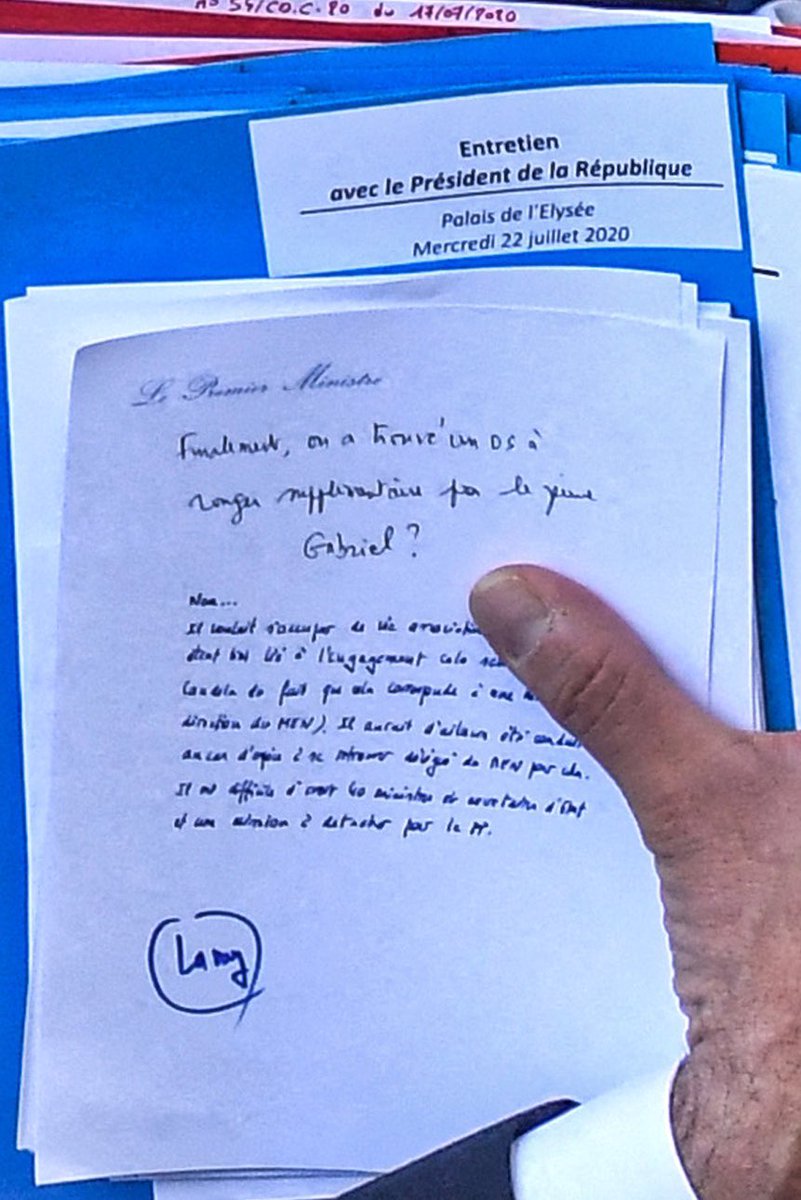 no 54/CO.C.20 du 17/07/2020
Entretien
avec le Président de la République
Palais de l'Elysée
Mercredi 22 juillet 2020
Le Premier Ministre
Finalement, on a trouvé un os à
ronger supplémentaire pour le jeune
Gabriel ?
Non...
Il voulait s'occuper de vie
étant lié à l'engagement
du fait que cela à une
direction du MEN). Il aurait d'ailleurs été
au cas d'espèce à se retrouver délégué du MEN
Il est difficile d'avoir 40 ministres et secrétaires d'Etat
et une mission à détacher par le